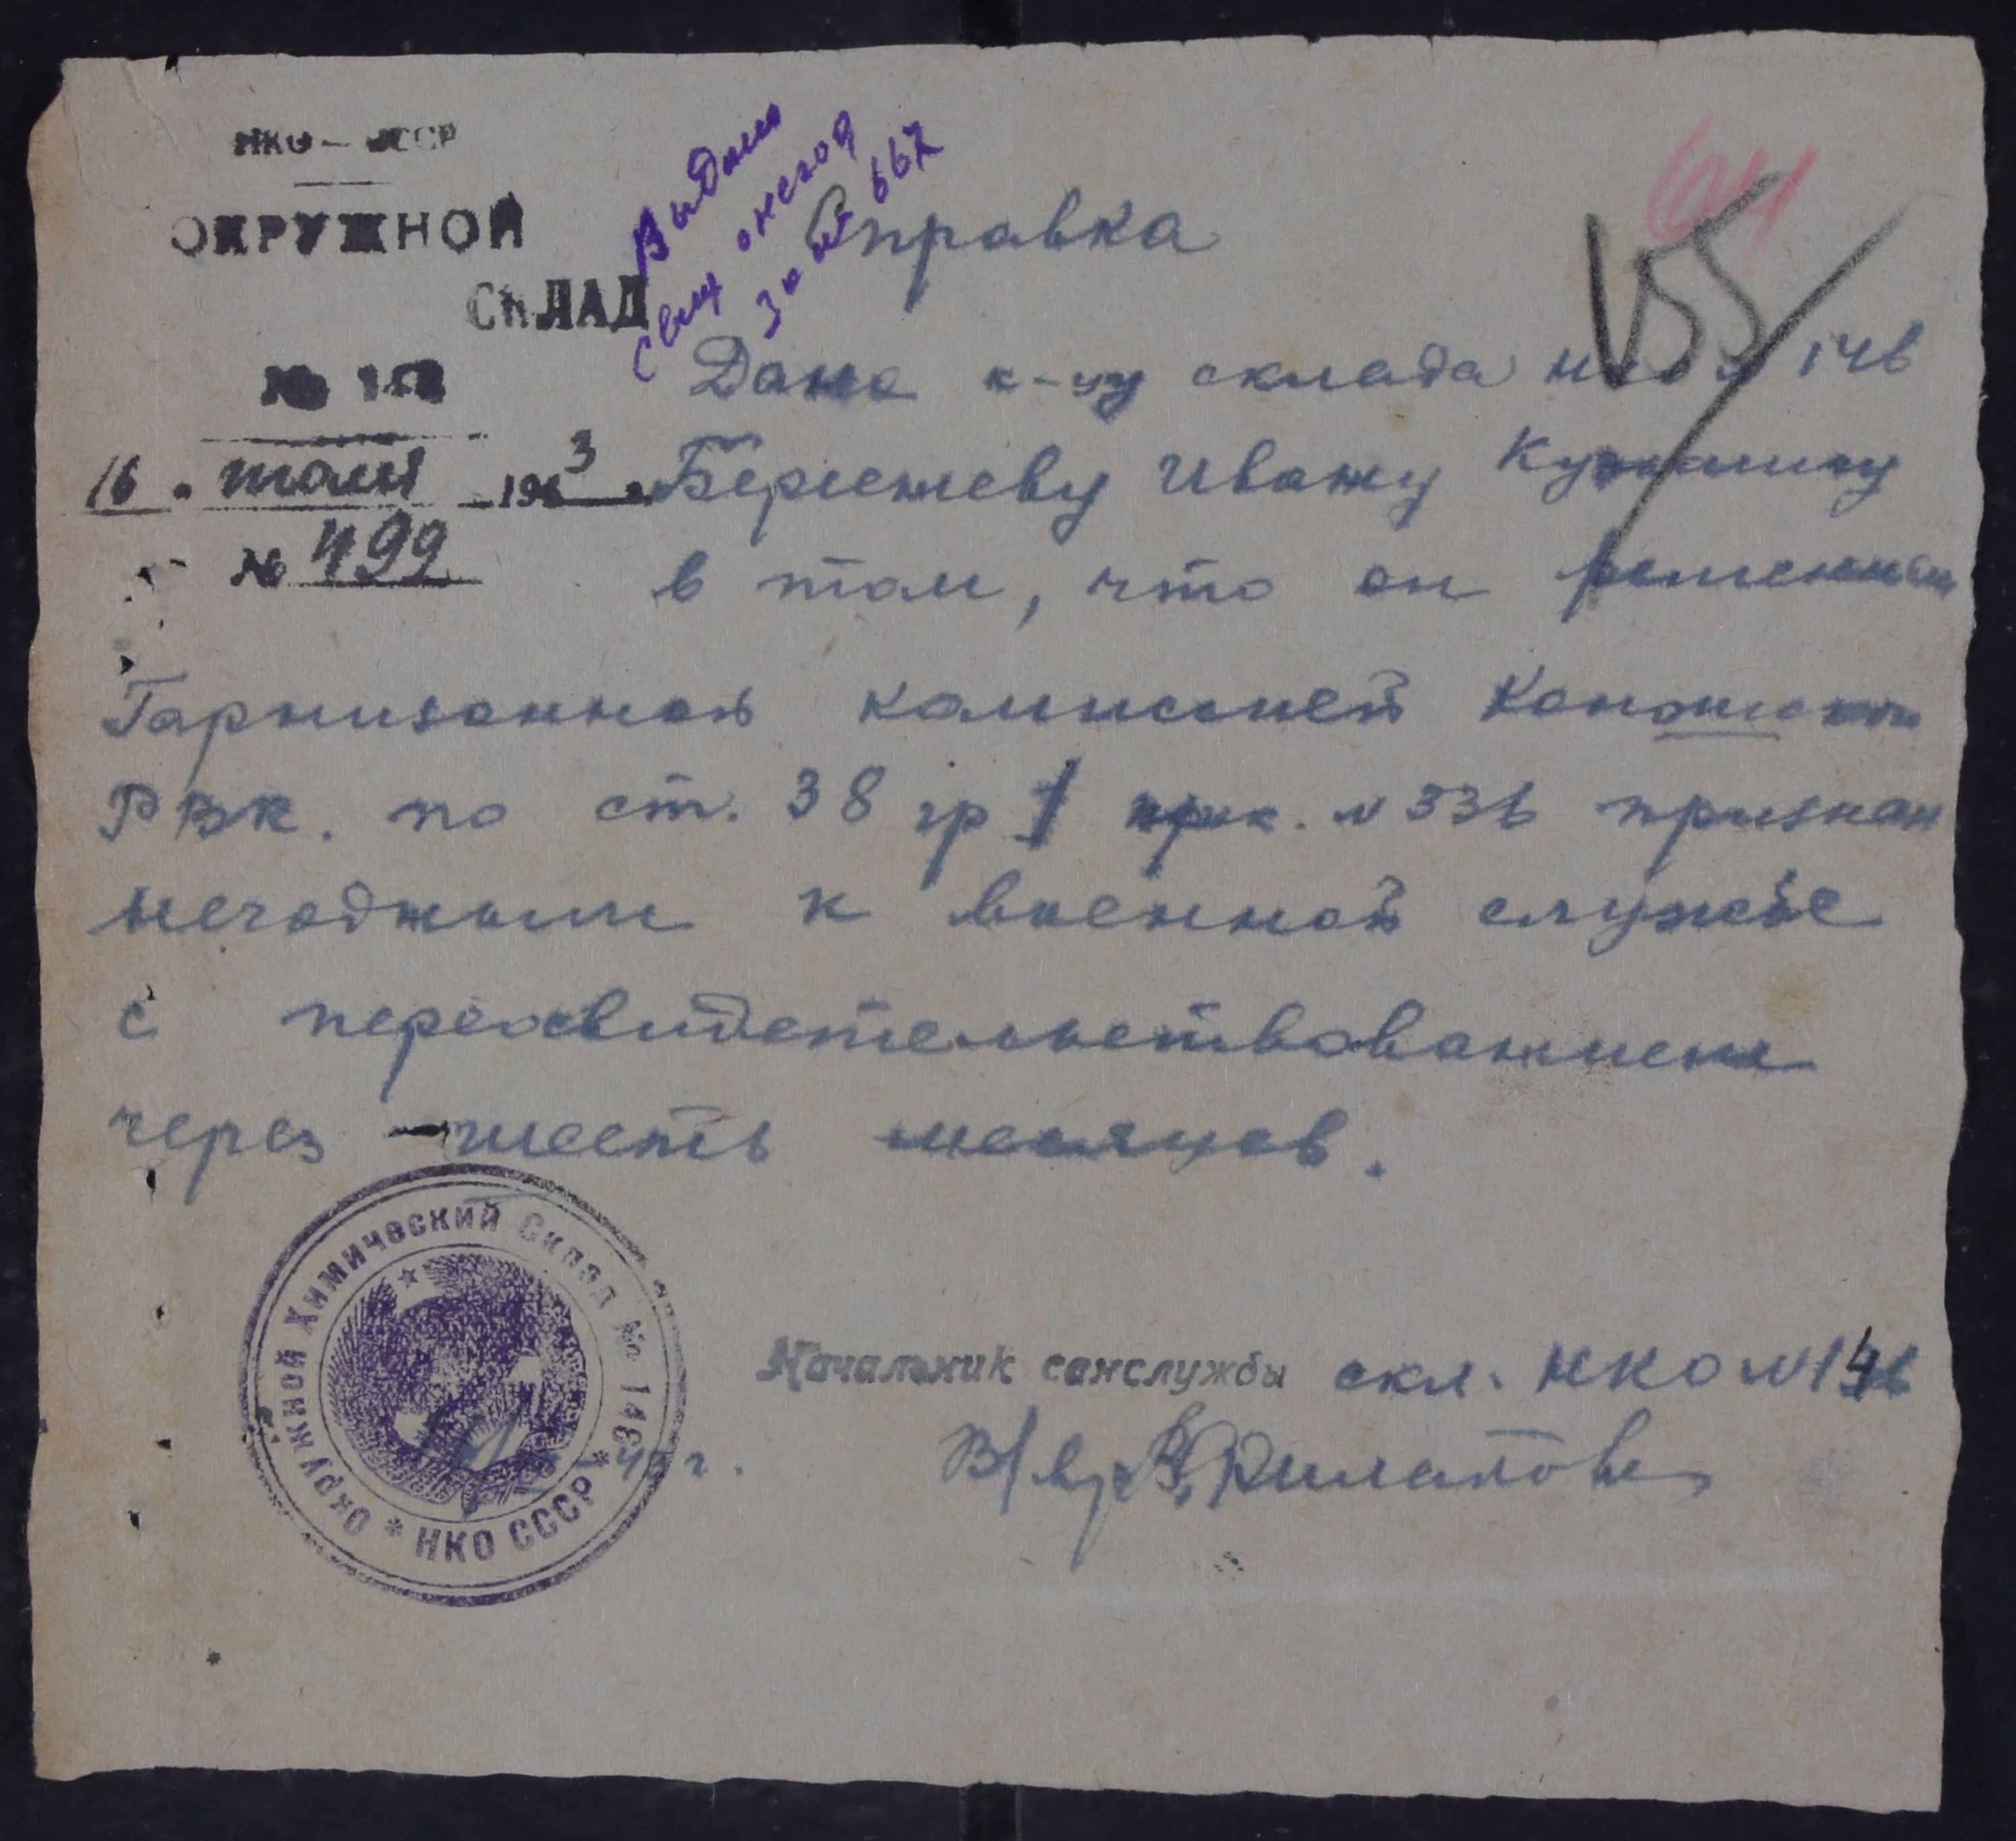 НКО — СССР
ОКРУЖНОЙ
СКЛАД
№ 146
16 . июля 1943
№ 499
Выдано
свид о негод
за № 667
64
155
Справка
Дана к-цу склада НКО № 146
Берсеневу Ивану Кузьмичу
в том, что он решением
Гарнизонной комиссией Коношского
РВК. по ст. 38 гр I прик. № 336 признан
негодным к военной службе
с переосвидетельствованием
через шесть месяцев.
Окружной Химический Склад № 146 * НКО СССР *
43 г.
Начальник санслужбы скл. НКО № 146
В/вр Филатова